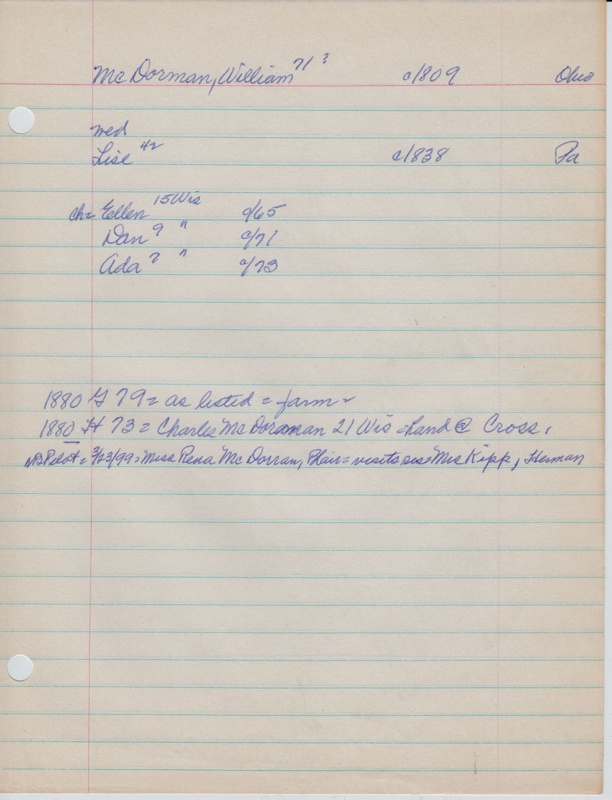 Mc Dorman, William 71 ? c/1809 Ohio
wed
Lise 42 c/1838 Pa
ch= Ellen 15 Wis c/65
Dan 9 " c/71
Ada 7 " c/73
1880 G 79 = as listed = farm
1880 H 73 = Charles Mc Dorman 21 Wis = hand @ Cross,
Pilot = 3/23/99 = Miss Rena Mc Dorram, Plair = visits sis = Mrs Kipp, Herman